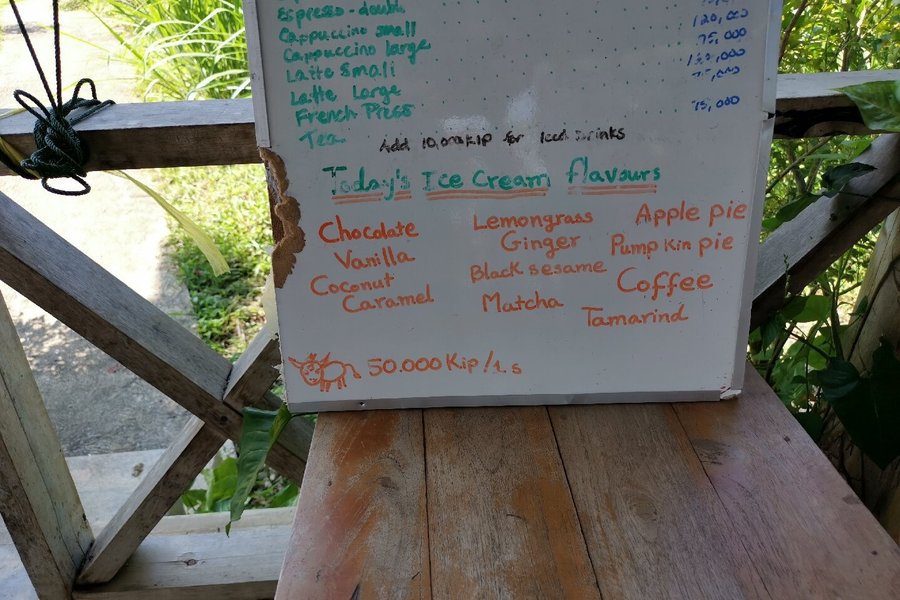 Espresso - double
Cappuccino small 120,000
Cappuccino large 75,000
Latte Small
Latte Large
French Press 75,000
Tea
Add 10,000 KIP for Iced Drinks
Today's Ice Cream flavours
Chocolate Lemongrass Apple pie
Vanilla Ginger Pumpkin pie
Coconut Black sesame Coffee
Caramel Matcha Tamarind
50.000 Kip/1 s